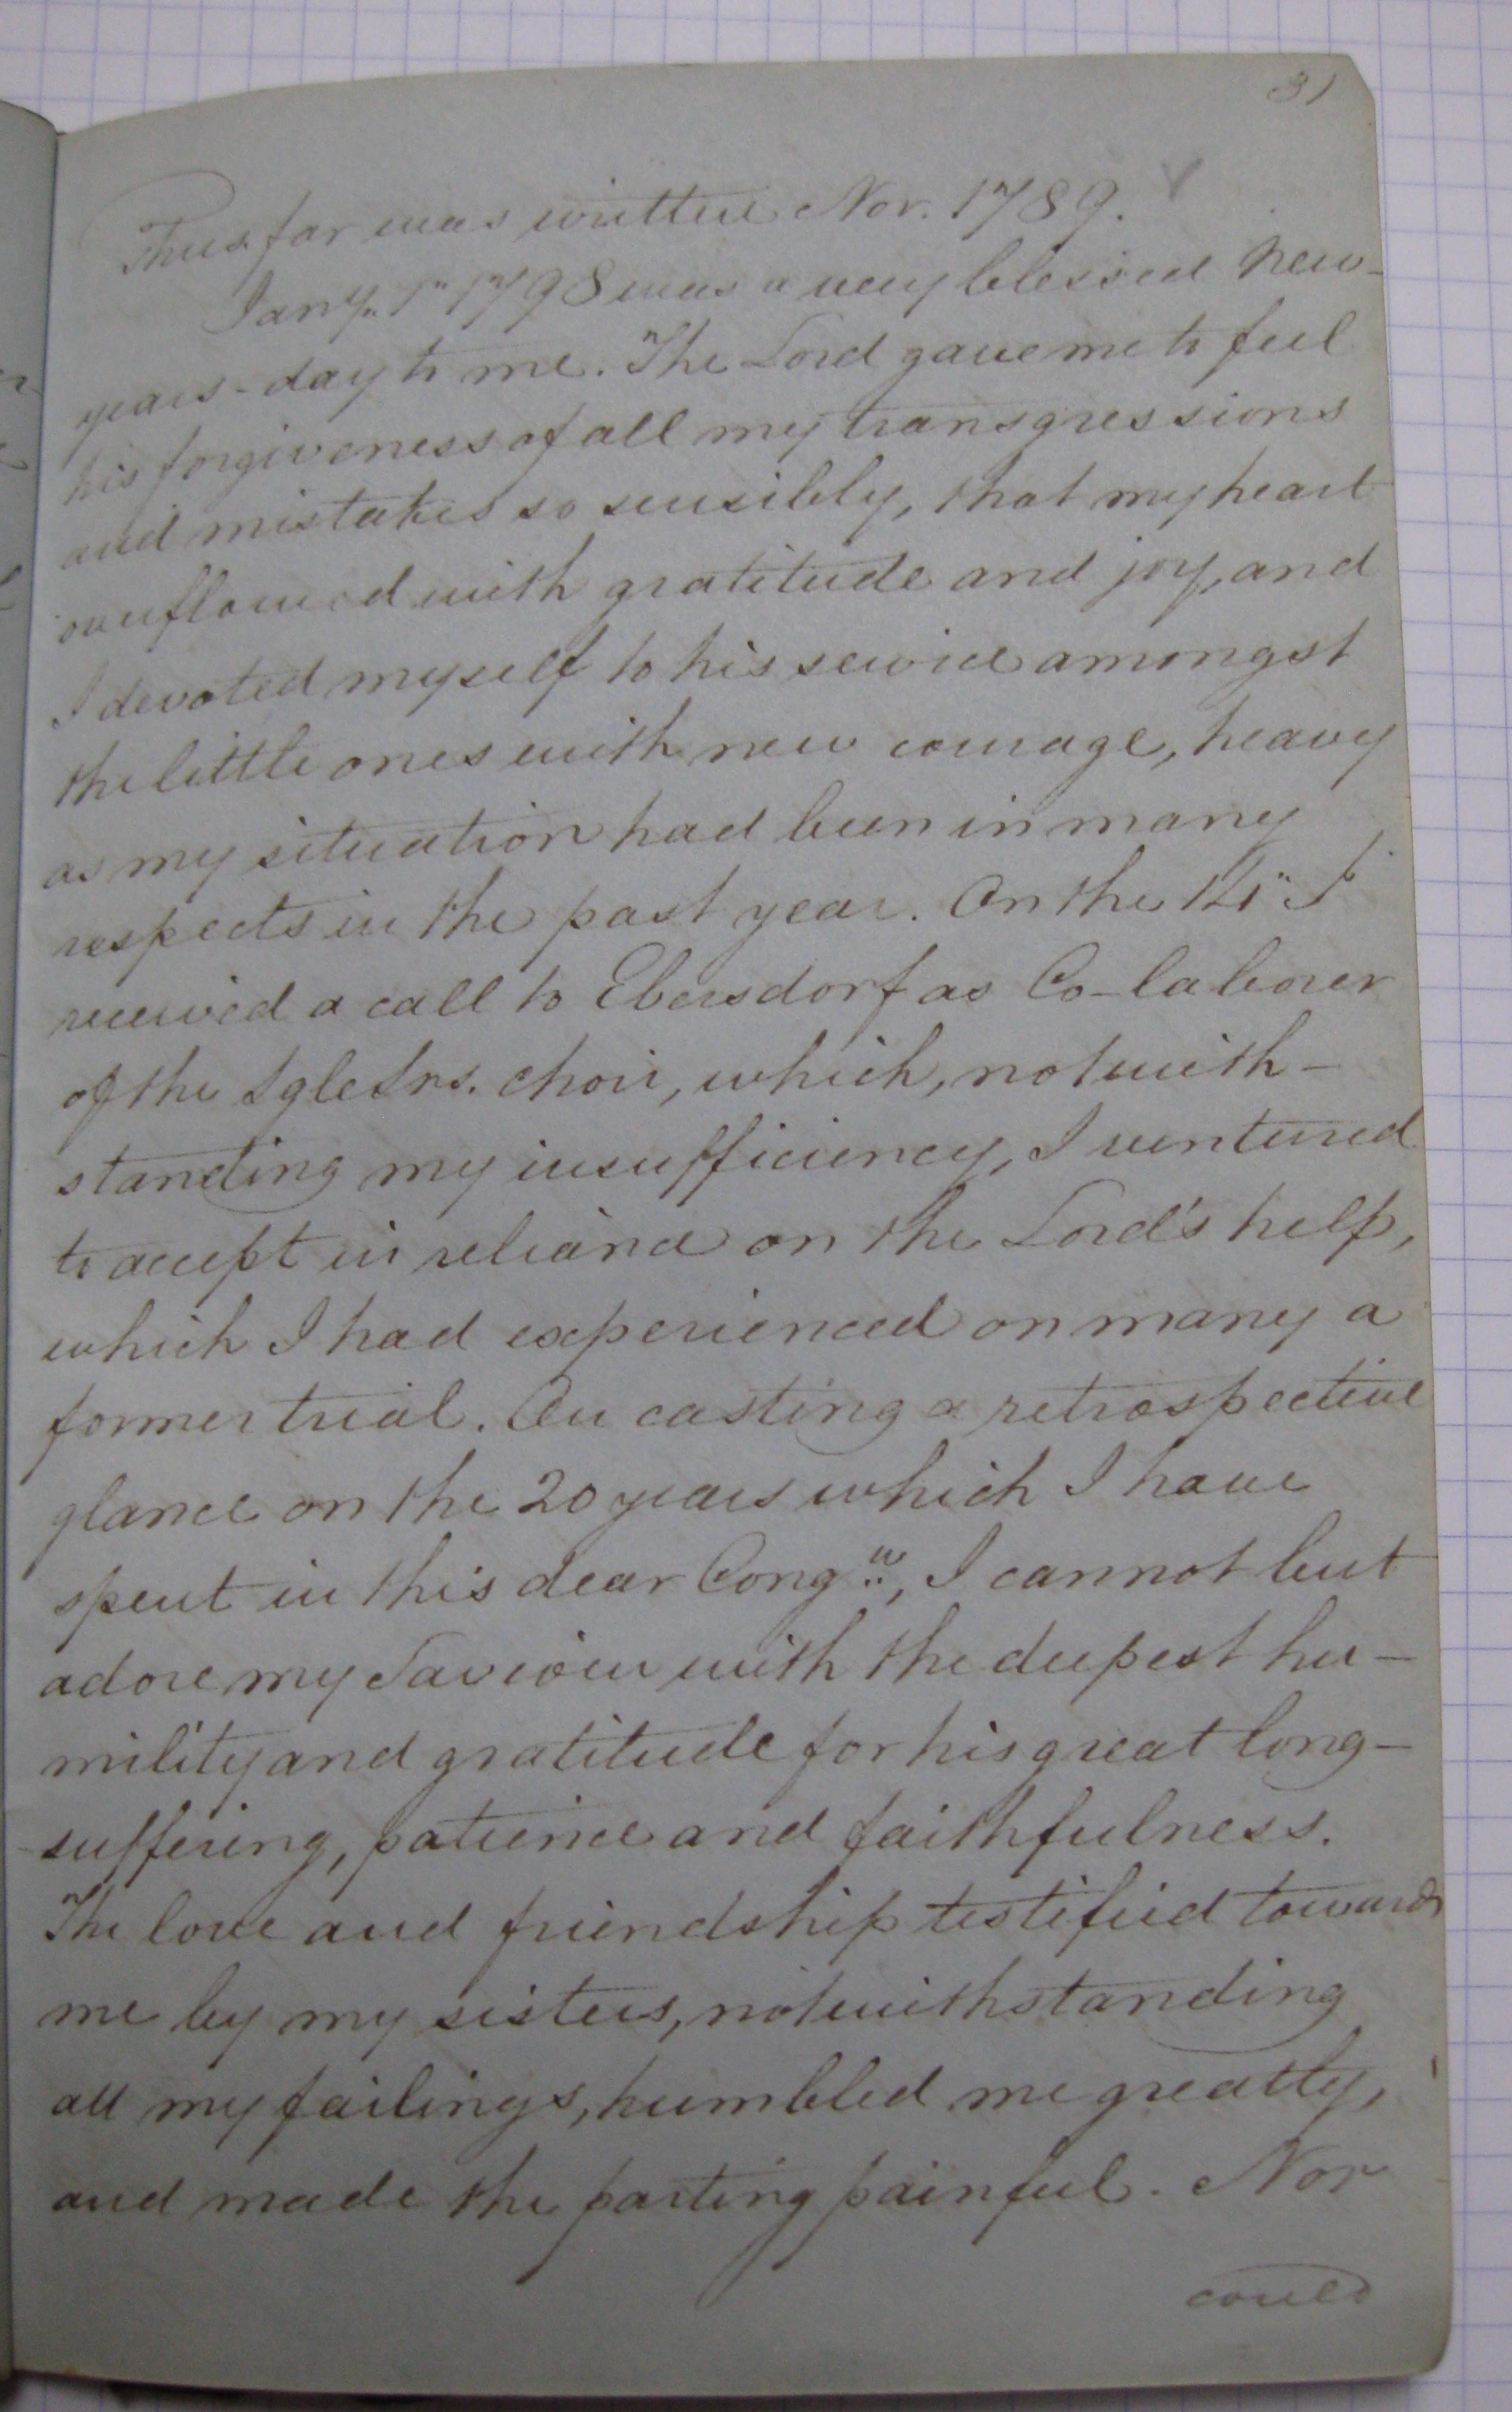 31
Thus far was written Nov. 1789.
Jany. 1" 1798 was a very blessed New-
years-day to me. The Lord gave me to feel
his forgiveness of all my transgressions
and mistakes so sensibly, that my heart
overflowed with gratitude and joy, and
I devoted myself to his service amongst
the little ones with new courage, heavy
as my situation had been in many
respects in the past year. On the 14" I
received a call to Ebersdorf as Co-labourer
of the Sgle Srs. choir, which, notwith-
standing my insufficiency, I ventured
to accept in reliance on the Lord's help,
which I had experienced on many a
former trial. On casting a retrospective
glance on the 20 years which I have
spent in this dear Congn, I cannot but
adore my Saviour with the deepest hu-
mility and gratitude for his great long-
suffering, patience and faithfulness.
The love and friendship testified towards
me by my sisters, notwithstanding
all my failings, humbled me greatly,
and made the parting painful. Nor
could